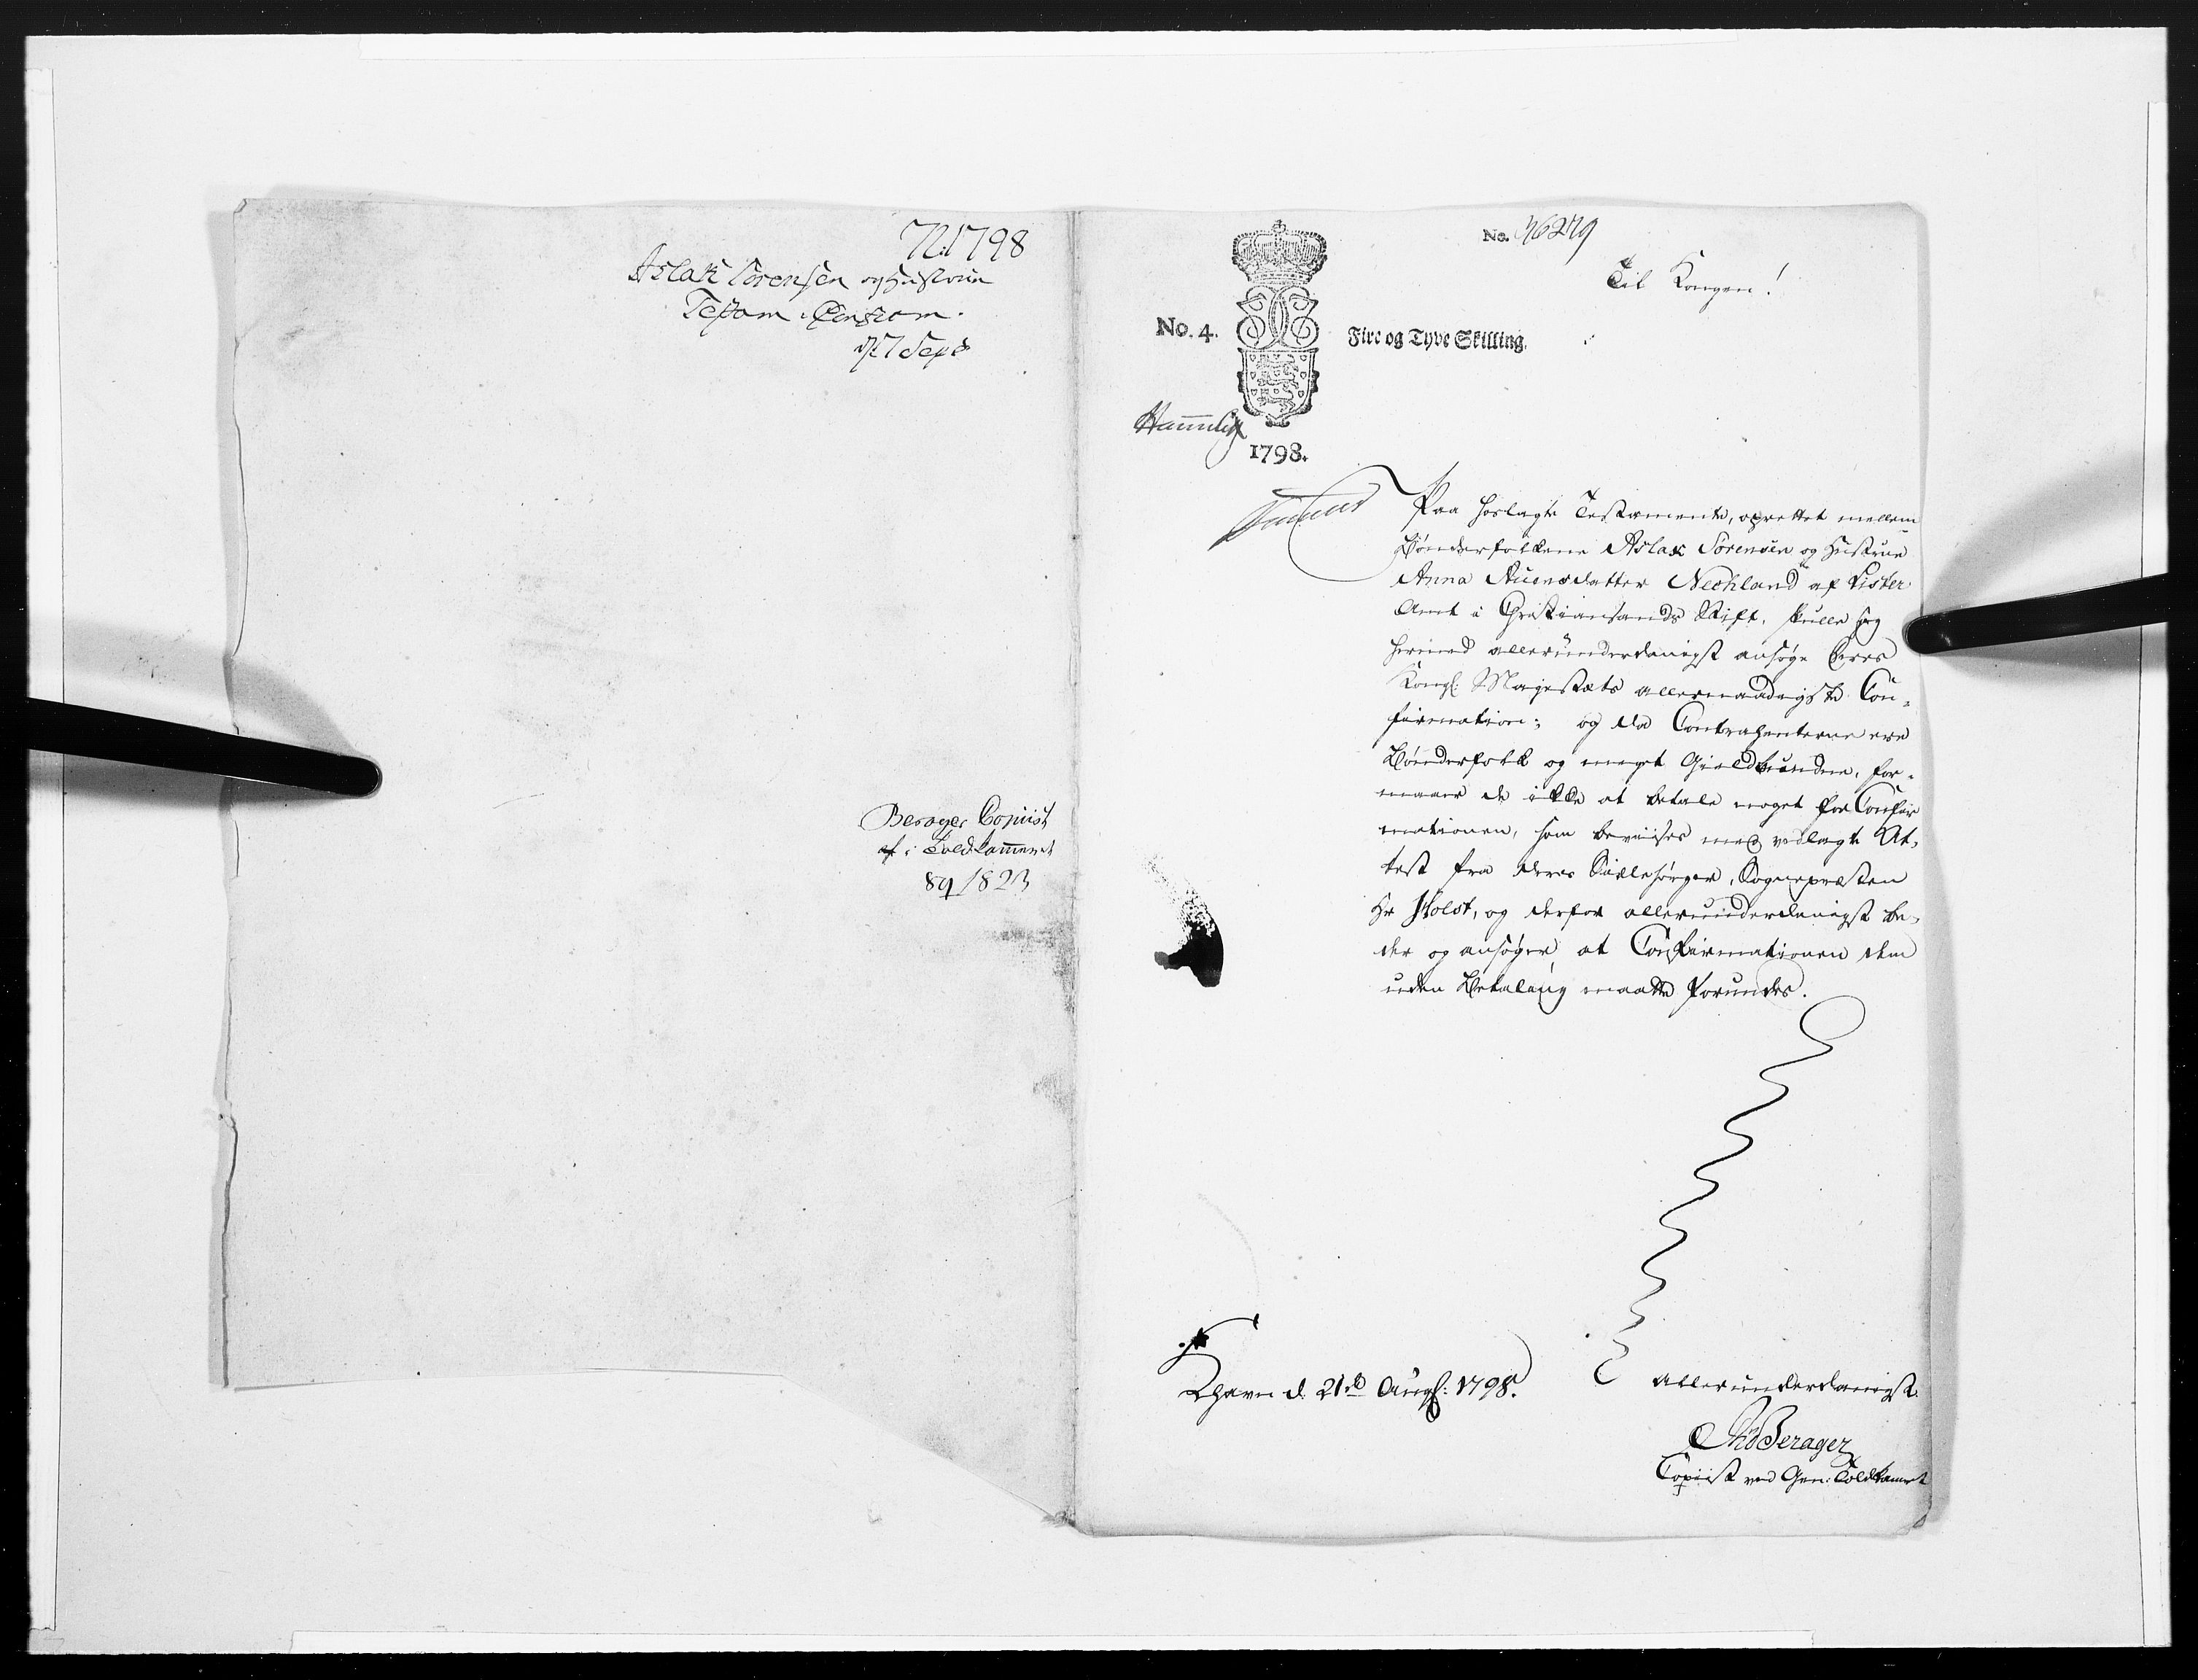 1798
Aslak Sörensen og Hustrue
Testam. Confirm.
d 7 Sept
Berager Copiist
i Toldkammeret
89/1823
No. 36279
Til Kongen!
No. 4.
Fire og Tyve Skilling.
1798.
Paa hoslagte Testamente, oprettet mellem
Bønderfolkene Aslak Sörensen og Hustrue
Anna Auensdatter Neshland af Lister
Amt i Christiansands Stift, skulle jeg
herved allerunderdanigst ansøge Deres
Kongl: Majestæts allernaadigste Con-
firmation; og da Contrahenterne ere
Bønderfolk og meget Gieldbundne, for-
maaer de ikke at betale noget for Confir
mationen, som beviises med vedlagte At-
test fra deres Siælesørger, Sognepræsten
Hr Holst, og derfor allerunderdanigst be-
der og ansøger, at Confirmationen dem
uden Betaling maatte forundes.
Khavn d. 21de Augst: 1798.
allerunderdanigst
Berager
Copiist ved Gen: Toldkamret